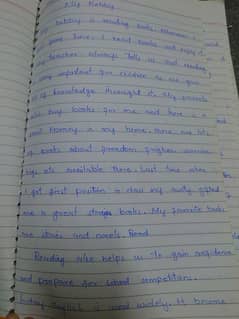 My Hobby
My hobby is reading books. Whenever I
free time, I read books and enjoy it.
My teachers always tells us that reading
very important for children as we gain
of knowledge through it. My parents
buy books for me and here is a
library in my home. There are lots
of books about freedom fighters,
available there. Last time when
I got first position in class my aunty gifted
me a great story books. My favorite books
are stories and novels. Read
Reading also helps us to gain confidence
and prepare for school competition.
English is used widely. It became